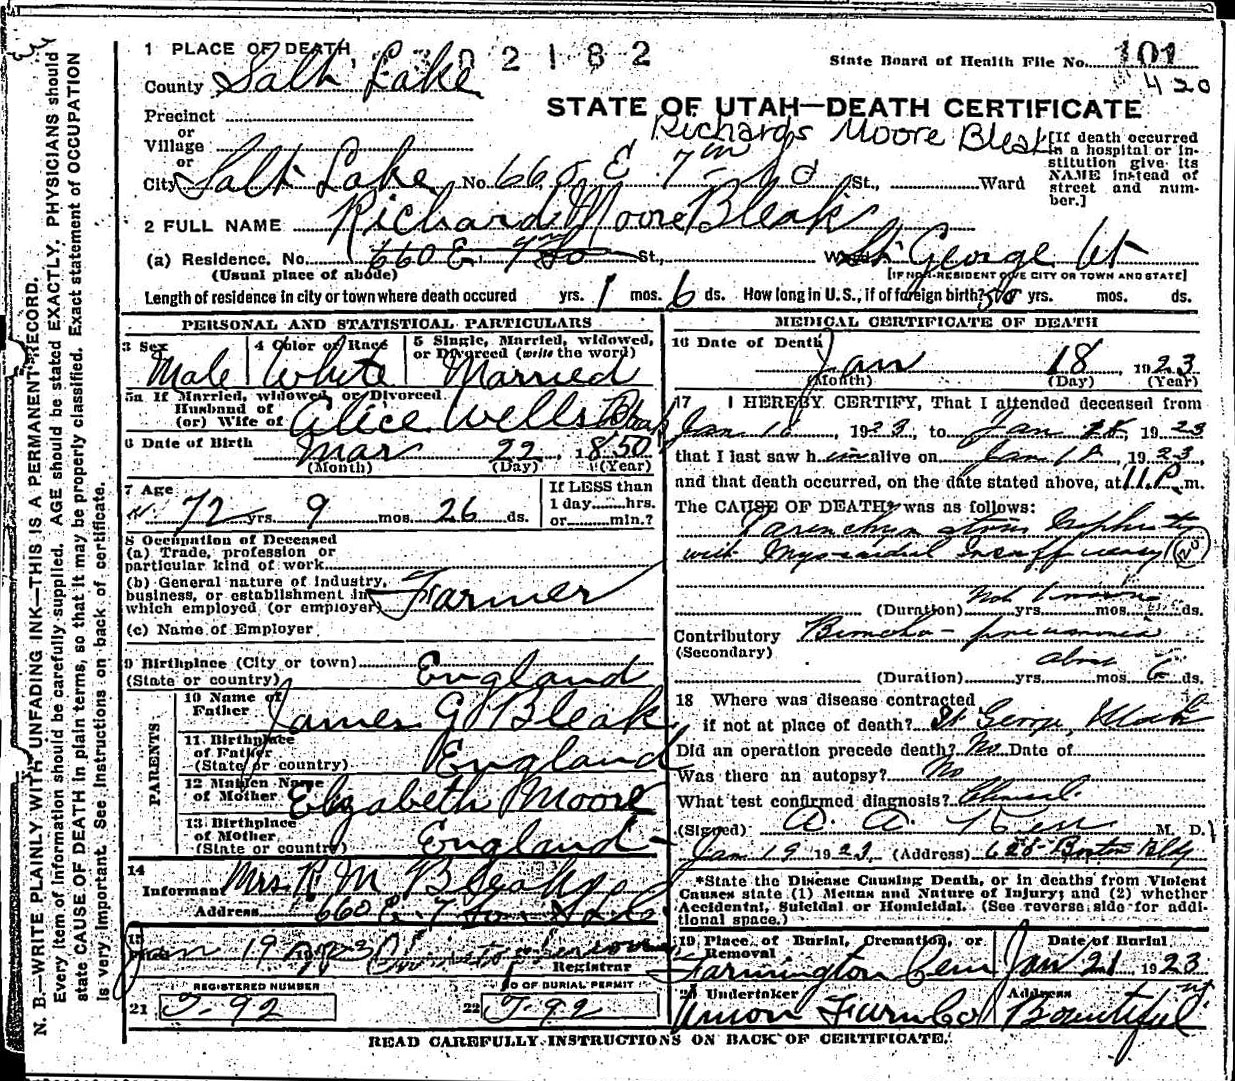 1 PLACE OF DEATH 2182
State Board of Health File No. 101
420
County Salt Lake
STATE OF UTAH—DEATH CERTIFICATE
Precinct
or
Village
Richards Moore Bleak
or
City Salt Lake No. 660 E 7th So St., Ward
[If death occurred in a hospital or institution give its NAME instead of street and number.]
2 FULL NAME Richard Moore Bleak
(a) Residence. No. 660 E. 7th So St., St. George Ut
(Usual place of abode) [IF NON-RESIDENT GIVE CITY OR TOWN AND STATE]
Length of residence in city or town where death occured yrs. 1 mos. 6 ds. How long in U.S., if of foreign birth? yrs. mos. ds.
PERSONAL AND STATISTICAL PARTICULARS
3 Sex 4 Color or Race 5 Single, Married, widowed, or Divorced (write the word)
Male White Married
5a If Married, widowed, or Divorced
Husband of
(or) Wife of Alice Wells Bleak
6 Date of Birth Mar 22, 1850
(Month) (Day) (Year)
7 Age 72 yrs 9 mos. 26 ds.
If LESS than
1 day......hrs.
or......min.?
8 Occupation of Deceased
(a) Trade, profession or
particular kind of work
(b) General nature of Industry,
business, or establishment in
which employed (or employer) Farmer
(c) Name of Employer
9 Birthplace (City or town)
(State or country) England
PARENTS
10 Name of
Father James G Bleak
11 Birthplace
of Father
(State or country) England
12 Maiden Name
of Mother Elizabeth Moore
13 Birthplace
of Mother
(State or country) England
14
Informant Mrs. R M Bleak
Address 660 E. 7 So. S L C.
15
Jan 19 1923
Registrar
REGISTERED NUMBER
21 J-92
NO OF BURIAL PERMIT
22 J-92
MEDICAL CERTIFICATE OF DEATH
16 Date of Death
Jan 18, 1923
(Month) (Day) (Year)
17 I HEREBY CERTIFY, That I attended deceased from
Jan 16, 1923, to Jan 18, 1923
that I last saw him alive on Jan 18, 1923,
and that death occurred, on the date stated above, at 11 P. m.
The CAUSE OF DEATH* was as follows:
Parenchymatous Nephritis
with Myocardial Insufficiency
(Duration) yrs. mos. ds.
Contributory Broncho-pneumonia
(Secondary)
(Duration) yrs. mos. 6 ds.
18 Where was disease contracted
if not at place of death? St. George, Utah
Did an operation precede death? No Date of
Was there an autopsy? No
What test confirmed diagnosis? Clinical
(Signed) A. A. Kerr M. D.
Jan 19 1923 (Address) Boston Bldg
*State the Disease Causing Death, or in deaths from Violent
Causes state (1) Means and Nature of Injury; and (2) whether
Accidental, Suicidal or Homicidal. (See reverse side for additional space.)
19 Place of Burial, Cremation, or Removal Date of Burial
Farmington Cem Jan 21 1923
20 Undertaker Address
Union Furn Co Bountiful
READ CAREFULLY INSTRUCTIONS ON BACK OF CERTIFICATE.
N. B.—WRITE PLAINLY WITH UNFADING INK—THIS IS A PERMANENT RECORD.
Every item of information should be carefully supplied. AGE should be stated EXACTLY. PHYSICIANS should
state CAUSE OF DEATH in plain terms, so that it may be properly classified. Exact statement of OCCUPATION
is very important. See instructions on back of certificate.